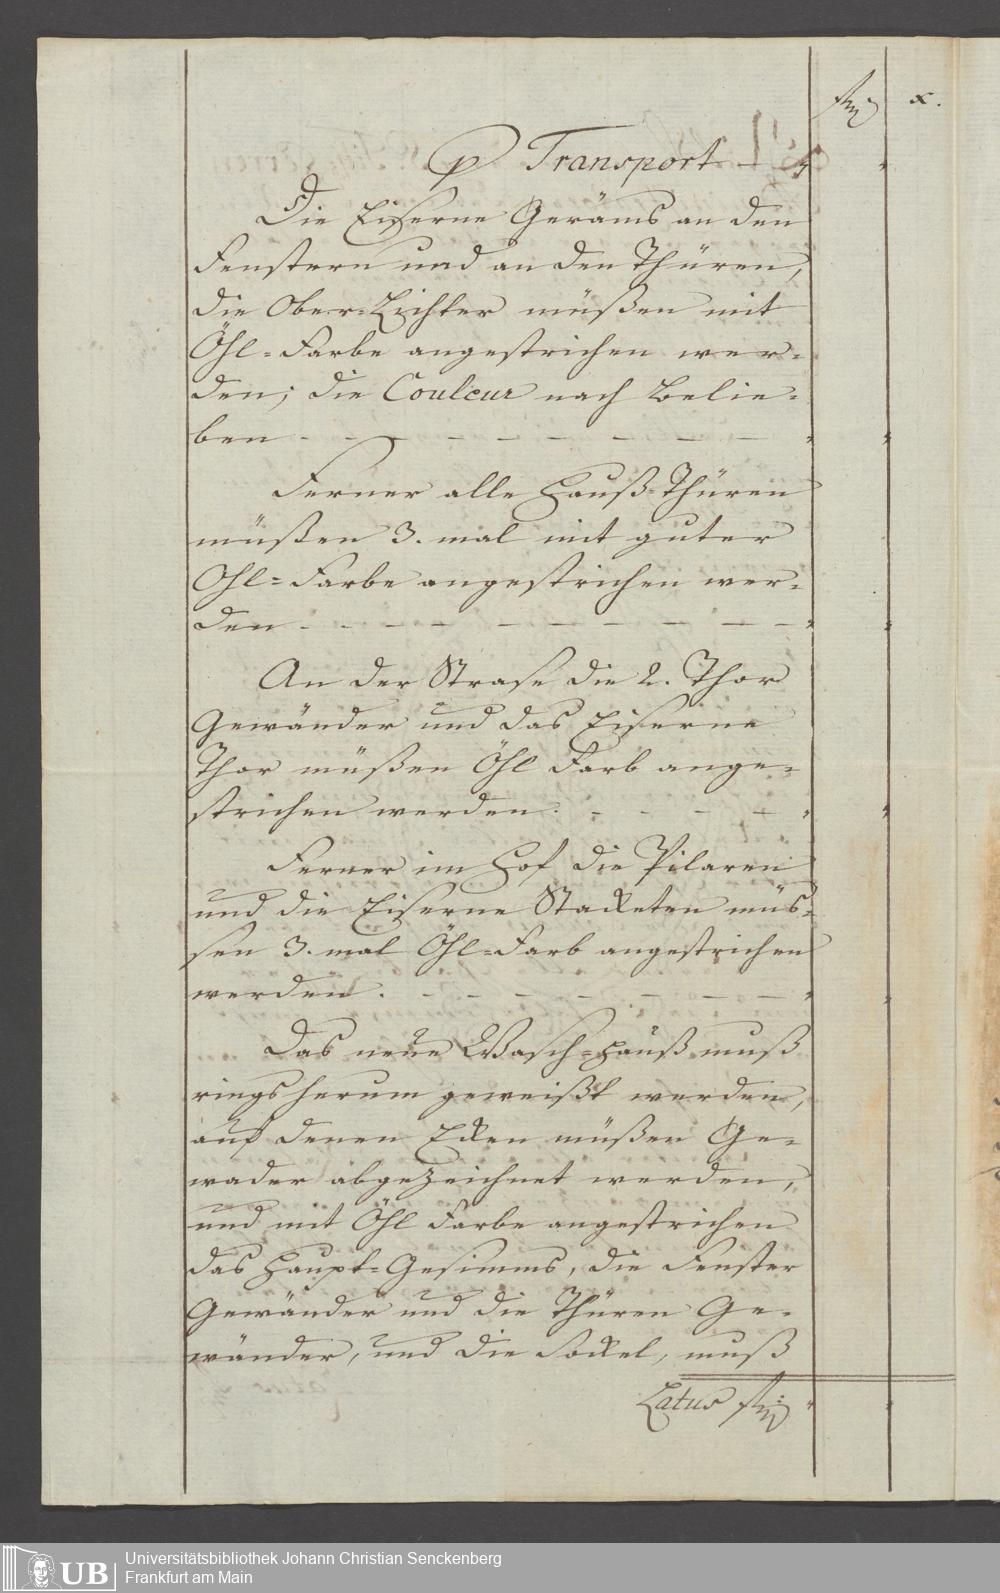 fl. x.
p Transport - "
Die Eiserne Geräms an den
Fenstern und an den Thüren,
die Ober-Lichter müßen mit
Öhl-Farbe angestrichen wer-
den; die Couleur nach Belie-
ben - - - - - - - - " "
Ferner alle Hauß-Thüren
müßen 3. mal mit guter
Öhl-Farbe angestrichen wer-
den - - - - - - - - - " "
An der Strase die 2. Thor
Gewänder und das Eiserne
Thor müßen Öhl Farb ange-
strichen werden. - - - - " "
Ferner im Hof die Pilaren
und die Eiserne Stacketen müs-
sen 3. mal Öhl-Farb angestrichen
werden. - - - - - - - " "
Das neüe Wasch-Hauß muß
rings herum geweißt werden,
auf denen Ecken müßen Ge-
wader abgezeichnet werden,
und mit Öhl Farbe angestrichen
das Haupt-Gesimms, die Fenster
Gewänder und die Thüren Ge-
wänder, und die Sockel, muß
Latus fl. " "
UB Universitätsbibliothek Johann Christian Senckenberg
Frankfurt am Main